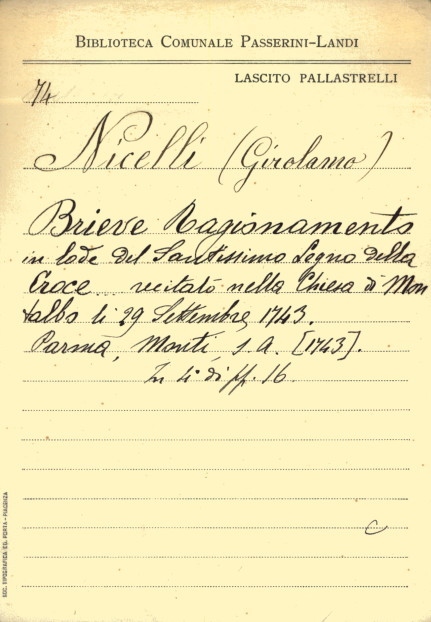 BIBLIOTECA COMUNALE PASSERINI-LANDI
LASCITO PALLASTRELLI
74
Nicelli (Girolamo)
Brieve Ragionamento
in lode del Santissimo Legno della
Croce... recitato nella Chiesa di Mon
talbo li 29 Settembre 1743.
Parma, Monti, s. a. [1743].
In 4° di pp. 16.
C
SOC. TIPOGRAFICA ED. PORTA - PIACENZA